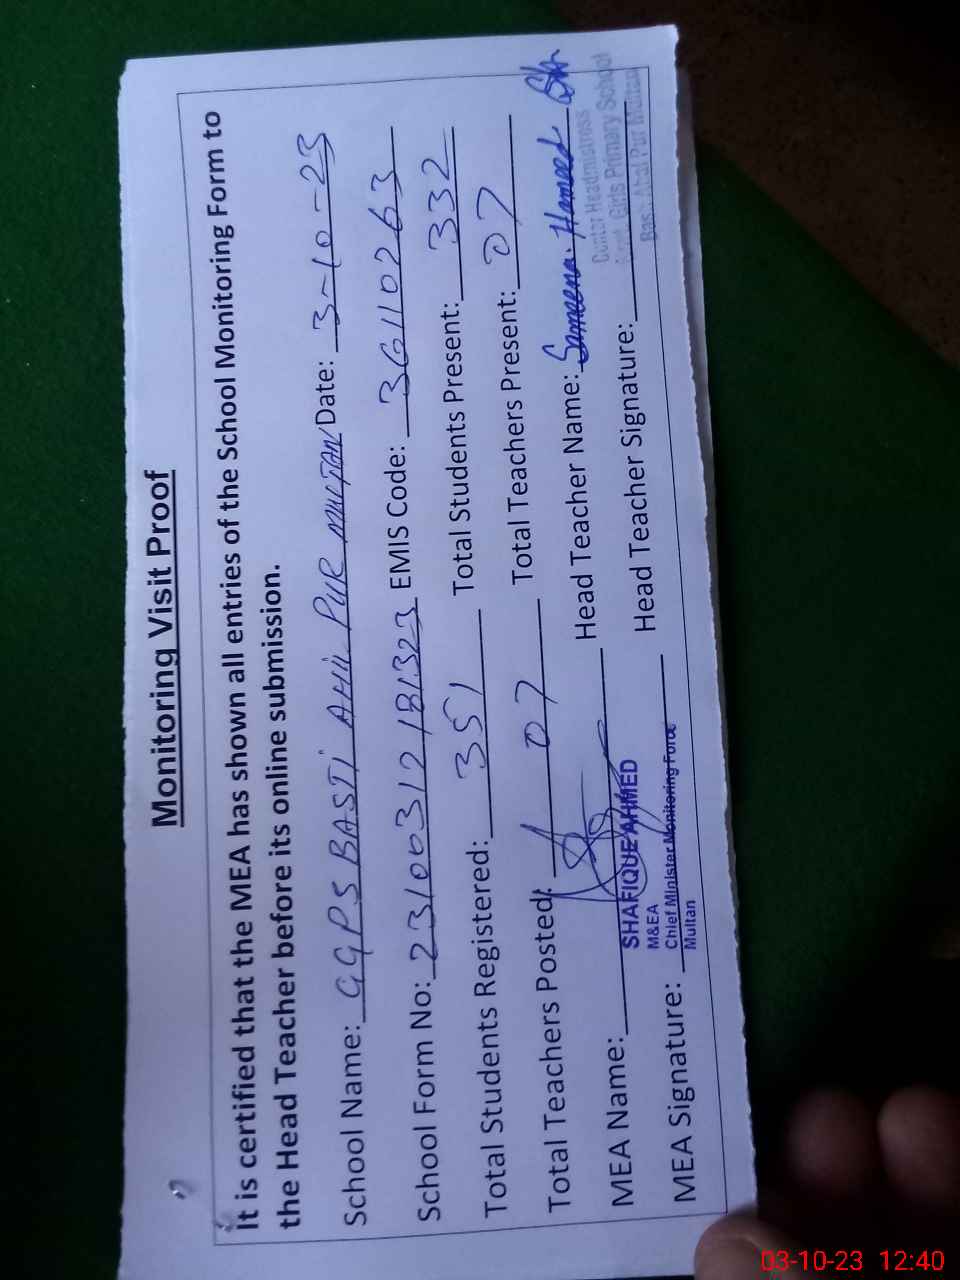 Monitoring Visit Proof
It is certified that the MEA has shown all entries of the School Monitoring Form to
the Head Teacher before its online submission.
School Name: GGPS BASTI AHIL PUR MULTAN Date: 3-10-23
School Form No: 231006312181323 EMIS Code: 36110263
Total Students Registered: 351 Total Students Present: 332
Total Teachers Posted: 07 Total Teachers Present: 07
MEA Name: Head Teacher Name: Sameena Hameed
SHAFIQUE AHMED
M&EA
Chief Minister Monitoring Force
Multan
MEA Signature: Head Teacher Signature:
Headmistress
Govt. Girls Primary School
Pur Multan
03-10-23 12:40